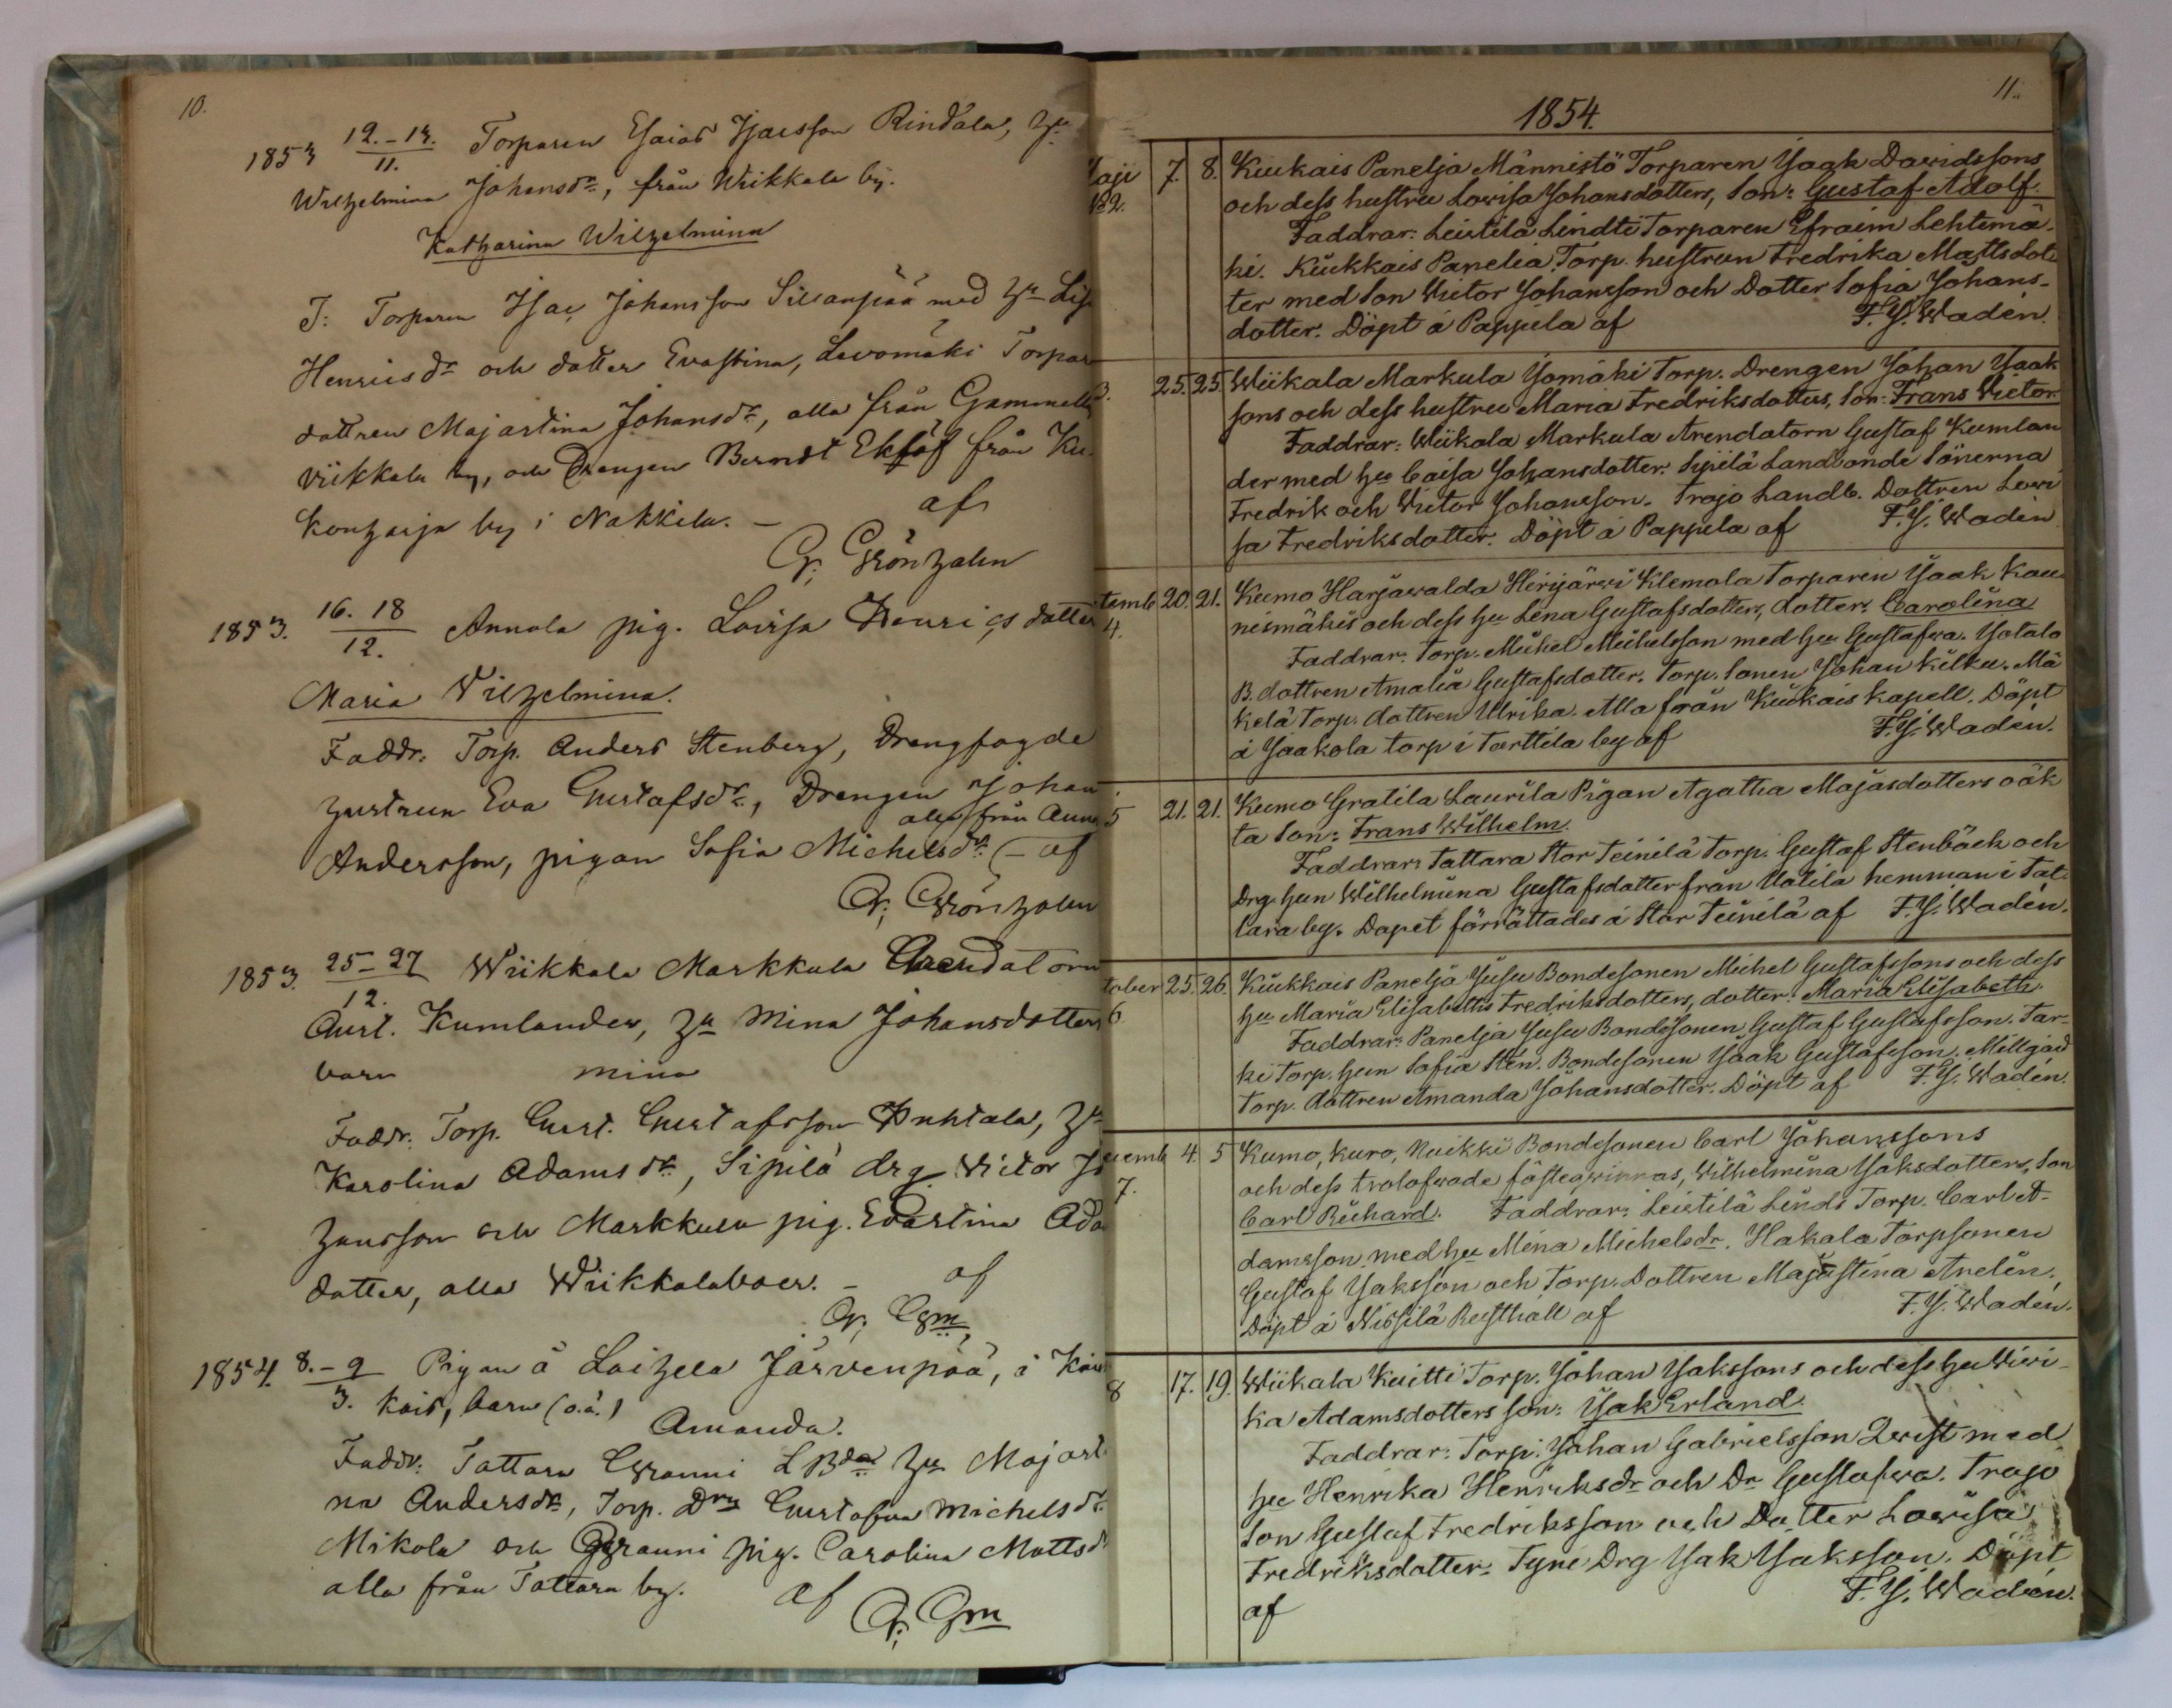 10.
1853 12.-13. Torparen Esaias Isacsson Rindala, hu
11.
Wilhelmina Johansdr., från Wiikkala by.
Katharina Wilhelmina
F: Torparen Isac Johansson Sillanpää med hu Lis
Henricsdr och dotter Evastina, Levomäki Torpar
dottren Majastina Johansdr, alla från Gammel
viikkala by, och Drengen Berndt Eklöf från Ku
konharja by i Nakkila. – af
G. Grönholm
1853. 16. 18 Annola pig. Lovisa Henrics dotter
12.
Maria Wilhelmina.
Faddr. Torp. Anders Stenberg, Drengfogde
hustrun Eva Gustafsdr., Drengen Johan
alla från Ann
Andersson, pigan Sofia Michelsdr. – af
G. Grönholm
1853. 25-27 Wiikkala Markkula Arendatorn
12.
Gust. Kumlander, hu Mina Johansdotters
barn Mina
Faddr. Torp. Gust. Gustafsson Huhtala, hu
Karolina Adamsdr., Sipilä drg Victor Jo
hansson och Markkula pig. Evastina Ada
dotter, alla Wiikkalaboer. – af
G. Gm
1854. 8.-9 Pigan å Laihela Järvenpää, i Kiu
3. kais, barn (o.ä.)
Amanda.
Faddr. Tattara Granni LBdes hu Majast
na Andersdr., Torp. Drg Gustafva Michelsdr.
Mikola och Granni pig. Carolina Mattsd
alla från Tattara by. af
G. Gm
11.
1854.
Maji 7. 8. Kiukais Panelja Männistö Torparen Isaak Davidssons
№2. och dess hustru Lovisa Johansdotters, Son: Gustaf Adolf.
Faddrar: Leistilä Lindti Torparen Efraim Lehtimä-
ki. Kiukkais Panelia Torp. hustrun Fredrika Mattsdot-
ter med Son Victor Johansson och Dotter Sofia Johans-
dotter. Döpt å Pappila af F. J. Wadén.
3. 25. 25. Wiikala Markula Jomäki Torp. Drengen Johan Isaak
sons och dess hustru Maria Fredriksdotters, Son: Frans Victor.
Faddrar: Wiikala Markula Arendatorn Gustaf Kumlan
der med hu Caisa Johansdotter. Sipilä Landbonde Sönerna
Fredrik och Victor Johansson. Trojo Landb. Dottren Lovi
sa Fredriksdotter. Döpt å Pappila af F. J. Wadén
temb 20. 21. Kumo Harjawalda Hirvijärvi Klemola Torparen Isaak Kau
4. nismäkis och dess hu Lena Gustafsdotters, dotter: Carolina
Faddrar: Torp. Michel Michelsson med hu Gustafwa. Yotalo
B. dottren Amalia Gustafsdotter. Torp. Sonen Johan Kilkku. Mä
kelä Torp. dottren Ulrika. Alla från Kiukais kapell. Döpt
å Jaakola torp i Torttila by af F. J. Wadén.
5 21. 21. Kumo Gratila Laurila Pigan Agatha Majasdotters oäk
ta Son: Frans Wilhelm.
Faddrar: Tattara Stor Teinilä Torp. Gustaf Stenbäck och
Drg. hun Wilhelmina Gustafsdotter från Uotila hemman i Tat-
tara by. Dopet förrättades å Stor Teinilä af F. J. Wadén.
tober 25. 26. Kiukkais Panelja Jusu Bondesonen Michel Gustafssons och dess
6 hu Maria Elisabeths Fredriksdotters, dotter: Maria Elisabeth.
Faddrar: Panelja Jusu Bondesonen Gustaf Gustafsson. Tar-
ki Torp. hun Sofia Sten. Bondesonen Isaak Gustafsson. Mellgård
Torp. dottren Amanda Johansdotter. Döpt af F. J. Wadén.
cemb 4. 5 Kumo, Kuro, Nuikki Bondesonen Carl Johanssons
7. och dess trolofwade fästeqwinnas, Wilhelmina Isaksdotters, Son
Carl Richard. Faddrar: Leistilä Linds Torp. Carl A-
damsson med hu Mina Michelsdr. Hakala Torpsonen
Gustaf Isaksson och Torp. Dottren Majastina Anelin.
Döpt å Nissilä Rusthåll af F. J. Wadén.
8 17. 19. Wiikala Knitti Torp. Johan Isakssons och dess hu Wivi-
ka Adamsdotters Son: Isak Erland.
Faddrar: Torp. Johan Gabrielsson Qvist med
hu Henrika Henriksdr och Dr Gustafwa. Trojo
Son Gustaf Fredriksson och Dotter Lovisa
Fredriksdotter. Tyni Drg Isak Isaksson. Döpt
af F. J. Wadén.